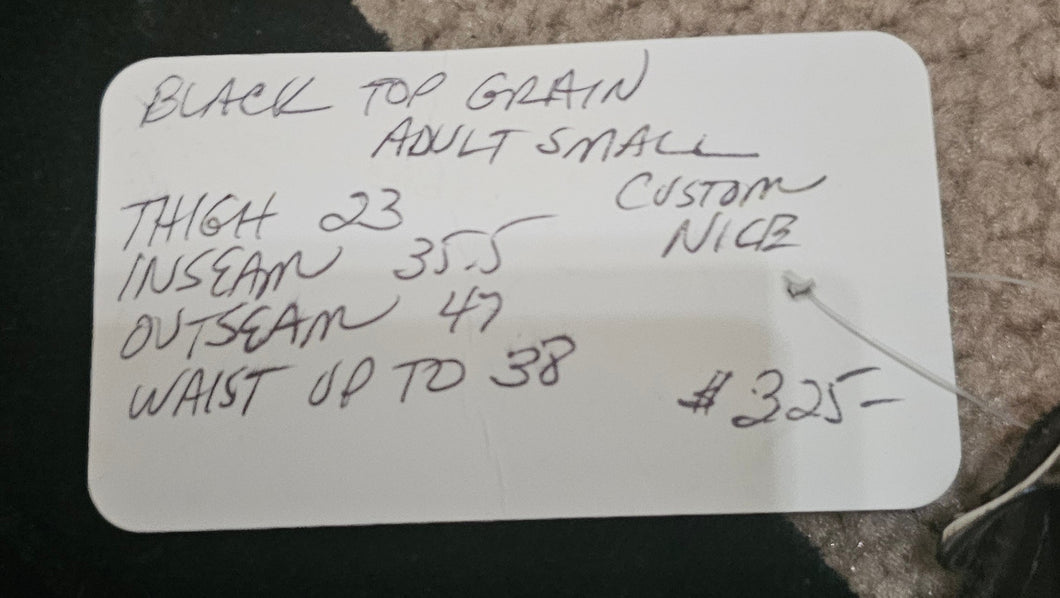 BLACK TOP GRAIN
ADULT SMALL
CUSTOM
NICE
THIGH 23
INSEAM 35.5
OUTSEAM 47
WAIST UP TO 38
$325-